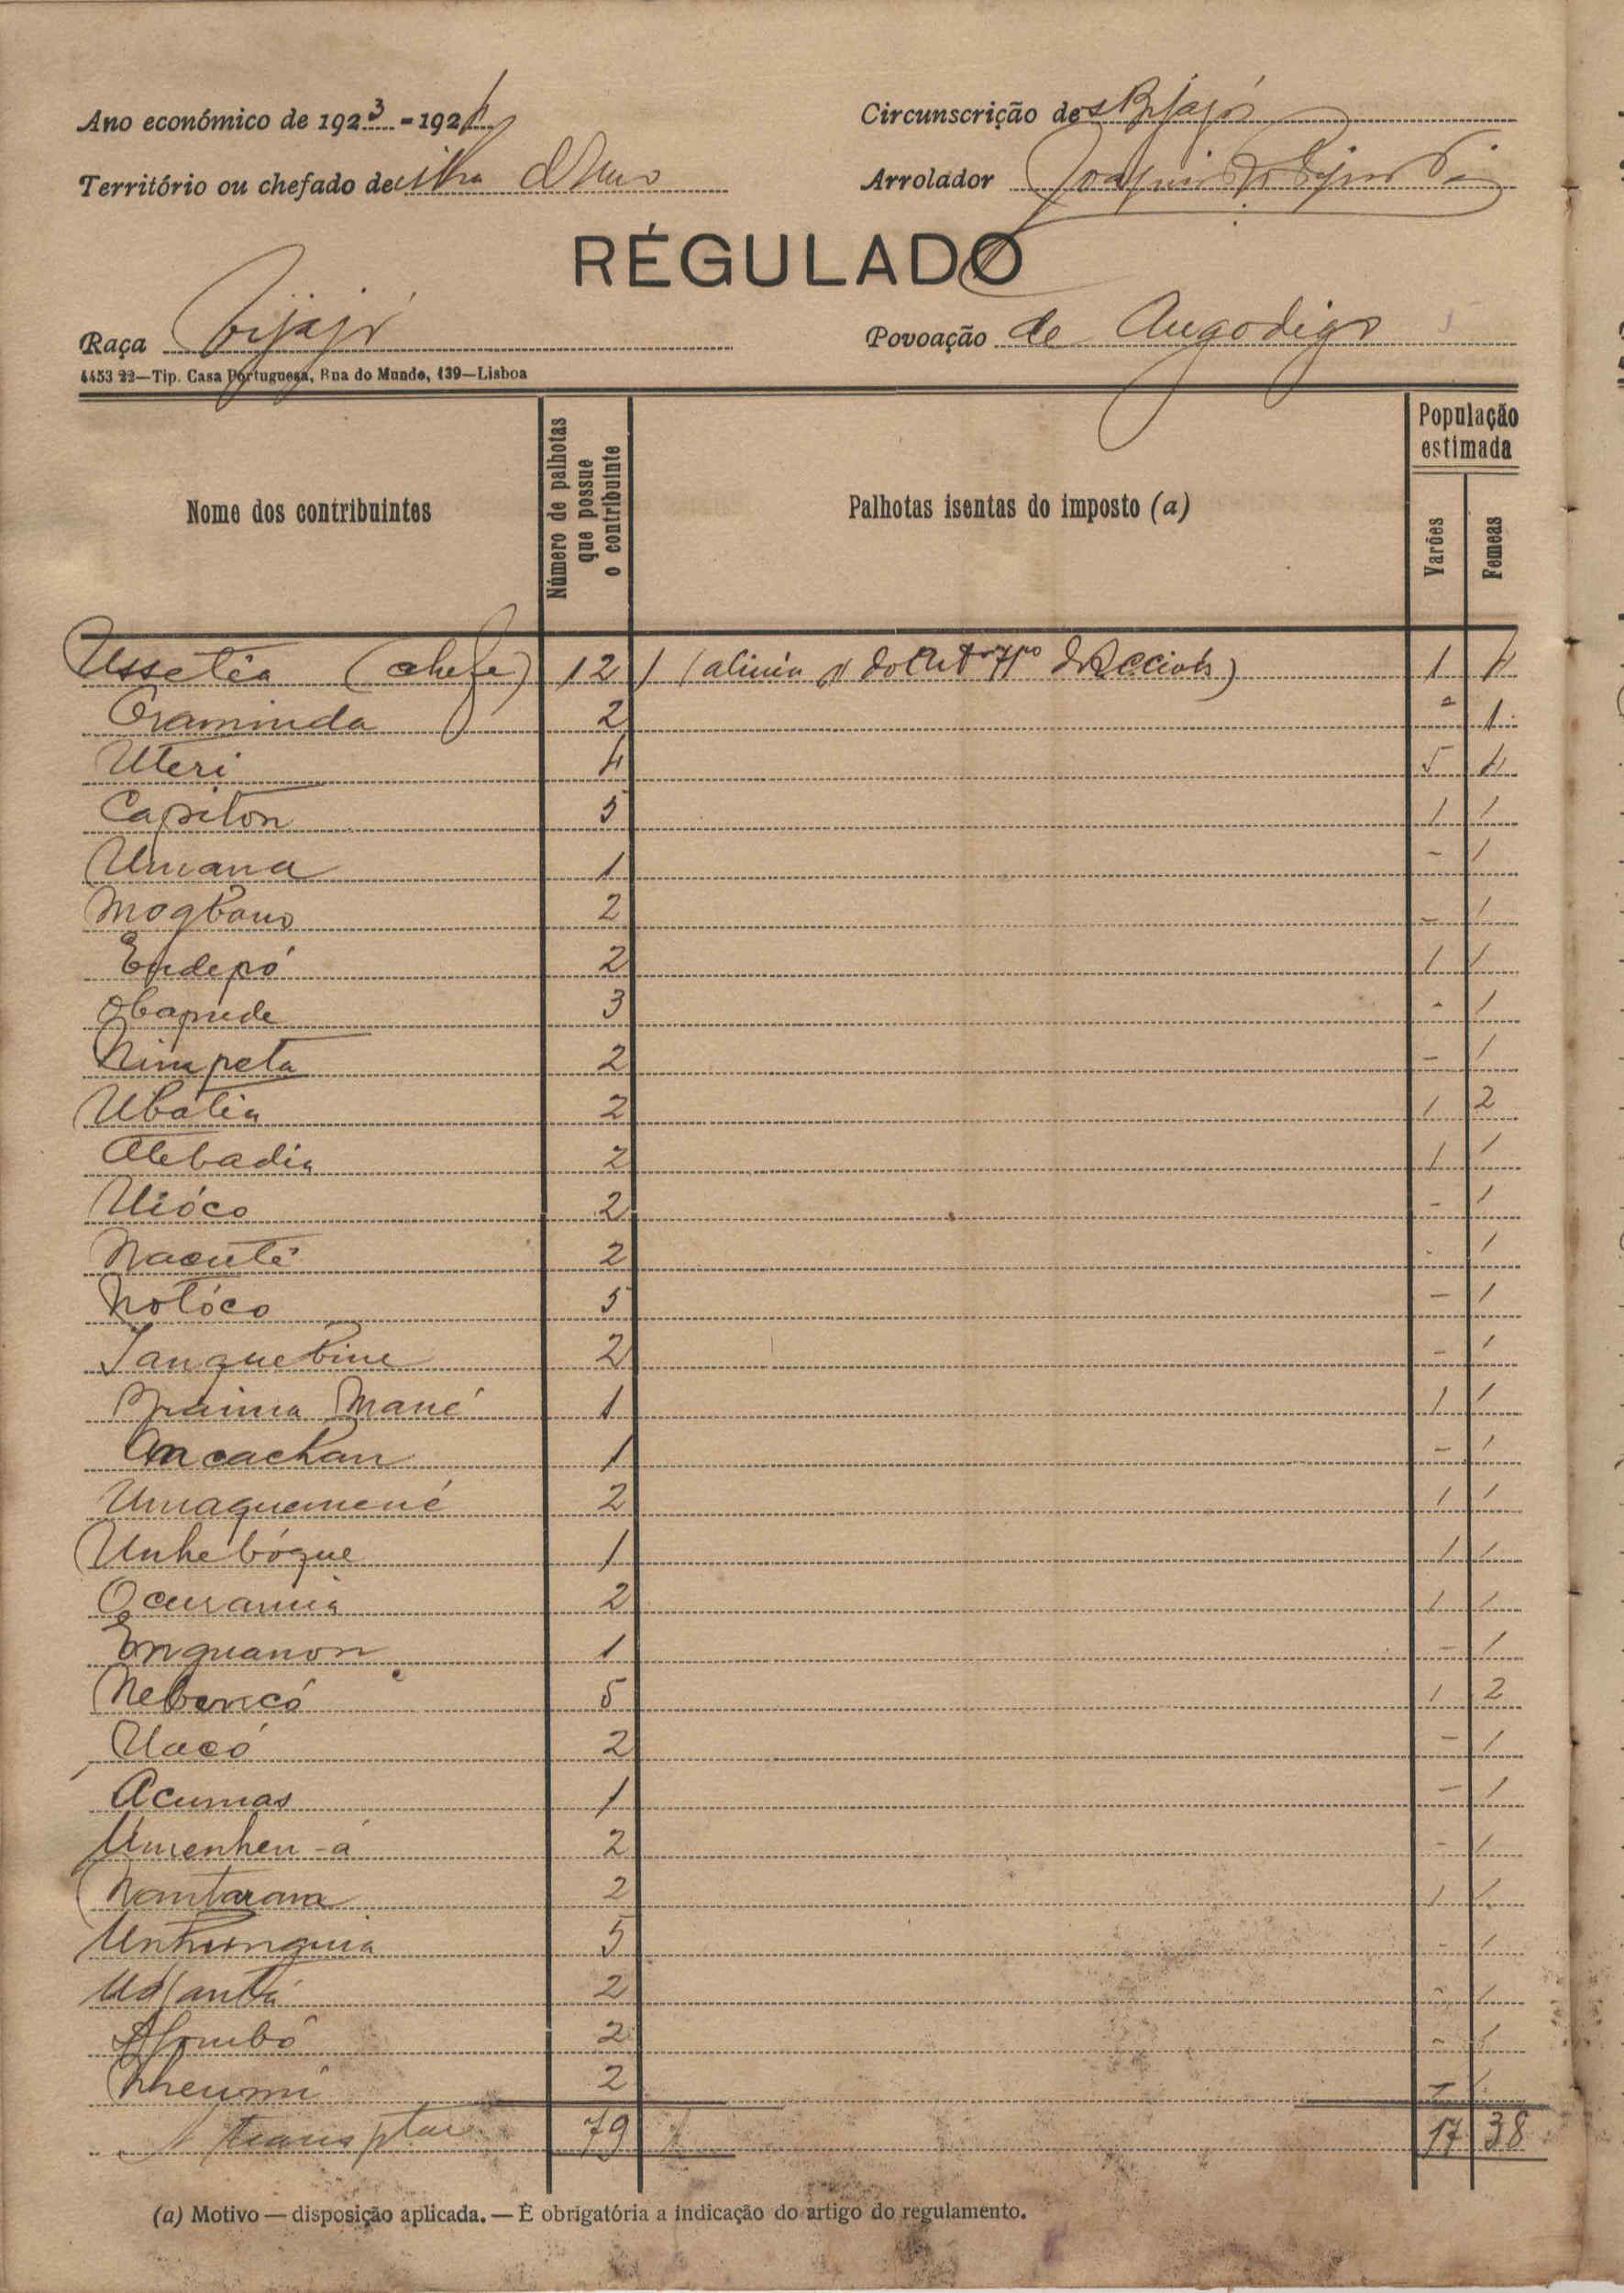 Ano económico de 1923-1924 Circunscrição de s Bijagós
Território ou chefado de ilha Arrolador Joaquim
RÉGULADO
Raça Bijagó Povoação de Angodigo
4453 22—Tip. Casa Portuguesa, Rua do Mundo, 139—Lisboa
Nome dos contribuintes Número de palhotas que possue o contribuinte Palhotas isentas do imposto (a) População estimada Varões Femeas
Ussetéa (chefe) 12 1 (alinia do 1 4
Oraminda 2 - 1
Uteri 4 5 4
Capiton 5 1 1
Umana 1 - 1
Mogbano 2 - 1
Endepó 2 1 1
Obapude 3 - 1
Nimpeta 2 - 1
Ubatia 2 1 2
Atebadia 2 1 1
Uióco 2 - 1
Nacuté 2 - 1
Notóco 5 - 1
Tanquebine 2 - 1
Braima Mané 1 1 1
Ancachan 1 - 1
Umaquemené 2 1 1
Unhebóque 1 1 1
Ocurania 2 1 1
Enquanon 1 - 1
Nebericó 5 1 2
Uacó 2 - 1
Acumas 1 - 1
Umenheu-á 2 - 1
Nantarana 2 1 1
Unhunguia 5 - 1
2 - 1
2 - 1
Nheumi 2 - 1
A transptar 79 1 17 38
(a) Motivo — disposição aplicada. — É obrigatória a indicação do artigo do regulamento.